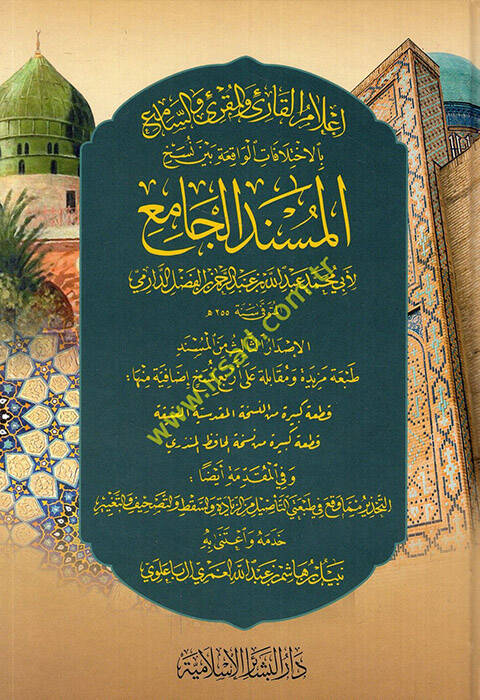 إعلام القارئ والمقرئ والسامع
بالاختلافات الواقعة بين نسخ
المسند الجامع
لأبي محمد عبد الله بن عبد الرحمن بن الفضل الدارمي
المتوفى سنة ٢٥٥ هـ
الإصدار الثالث من المسند
طبعة مزيدة ومقابلة على أربع نسخ إضافية منها:
قطعة كبيرة من النسخة المقدسية العتيقة
قطعة كبيرة من نسخة الحافظ المنذري
وفي المقدمة أيضا:
التحذير مما وقع في طبعتي التأصيل من الزيادة والسقط والتصحيف والتغيير
خدمه واعتنى به
نبيل بن هاشم بن عبد الله الغمري آل باعلوي
دار البشائر الإسلامية
www.iksad.com.tr